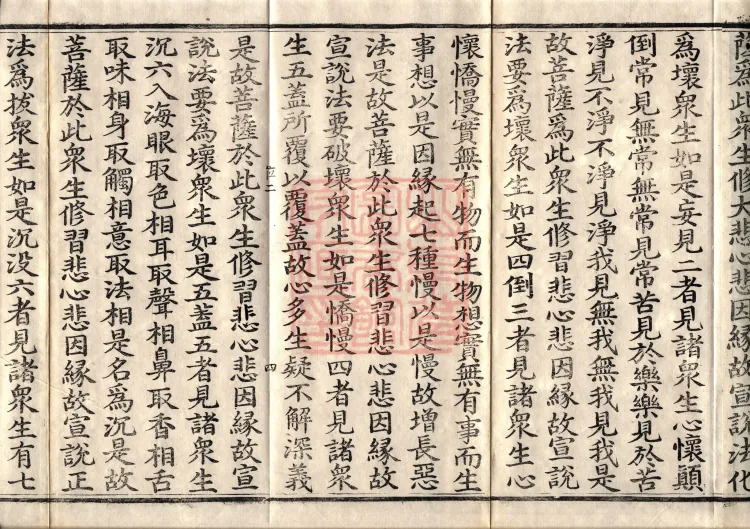 薩爲此衆生修大悲心悲因緣故宣説法化
爲壞衆生如是妄見二者見諸衆生心懷顛
倒常見無常無常見常苦見於樂樂見於苦
淨見不淨不淨見淨我見無我無我見我是
故菩薩爲此衆生修習悲心悲因緣故宣説
法要爲壞衆生如是四倒三者見諸衆生心
懷憍慢實無有物而生物想實無有事而生
事想以是因緣起七種慢以是慢故增長惡
法是故菩薩於此衆生修習悲心悲因緣故
宣説法要破壞衆生如是憍慢四者見諸衆
生五蓋所覆以覆蓋故心多生疑不解深義
是故菩薩於此衆生修習悲心悲因緣故宣
説法要爲壞衆生如是五蓋五者見諸衆生
沉六入海眼取色相耳取聲相鼻取香相舌
取味相身取觸相意取法相是名爲沉是故
菩薩於此衆生修習悲心悲因緣故宣説正
法爲拔衆生如是沉没六者見諸衆生有七
四